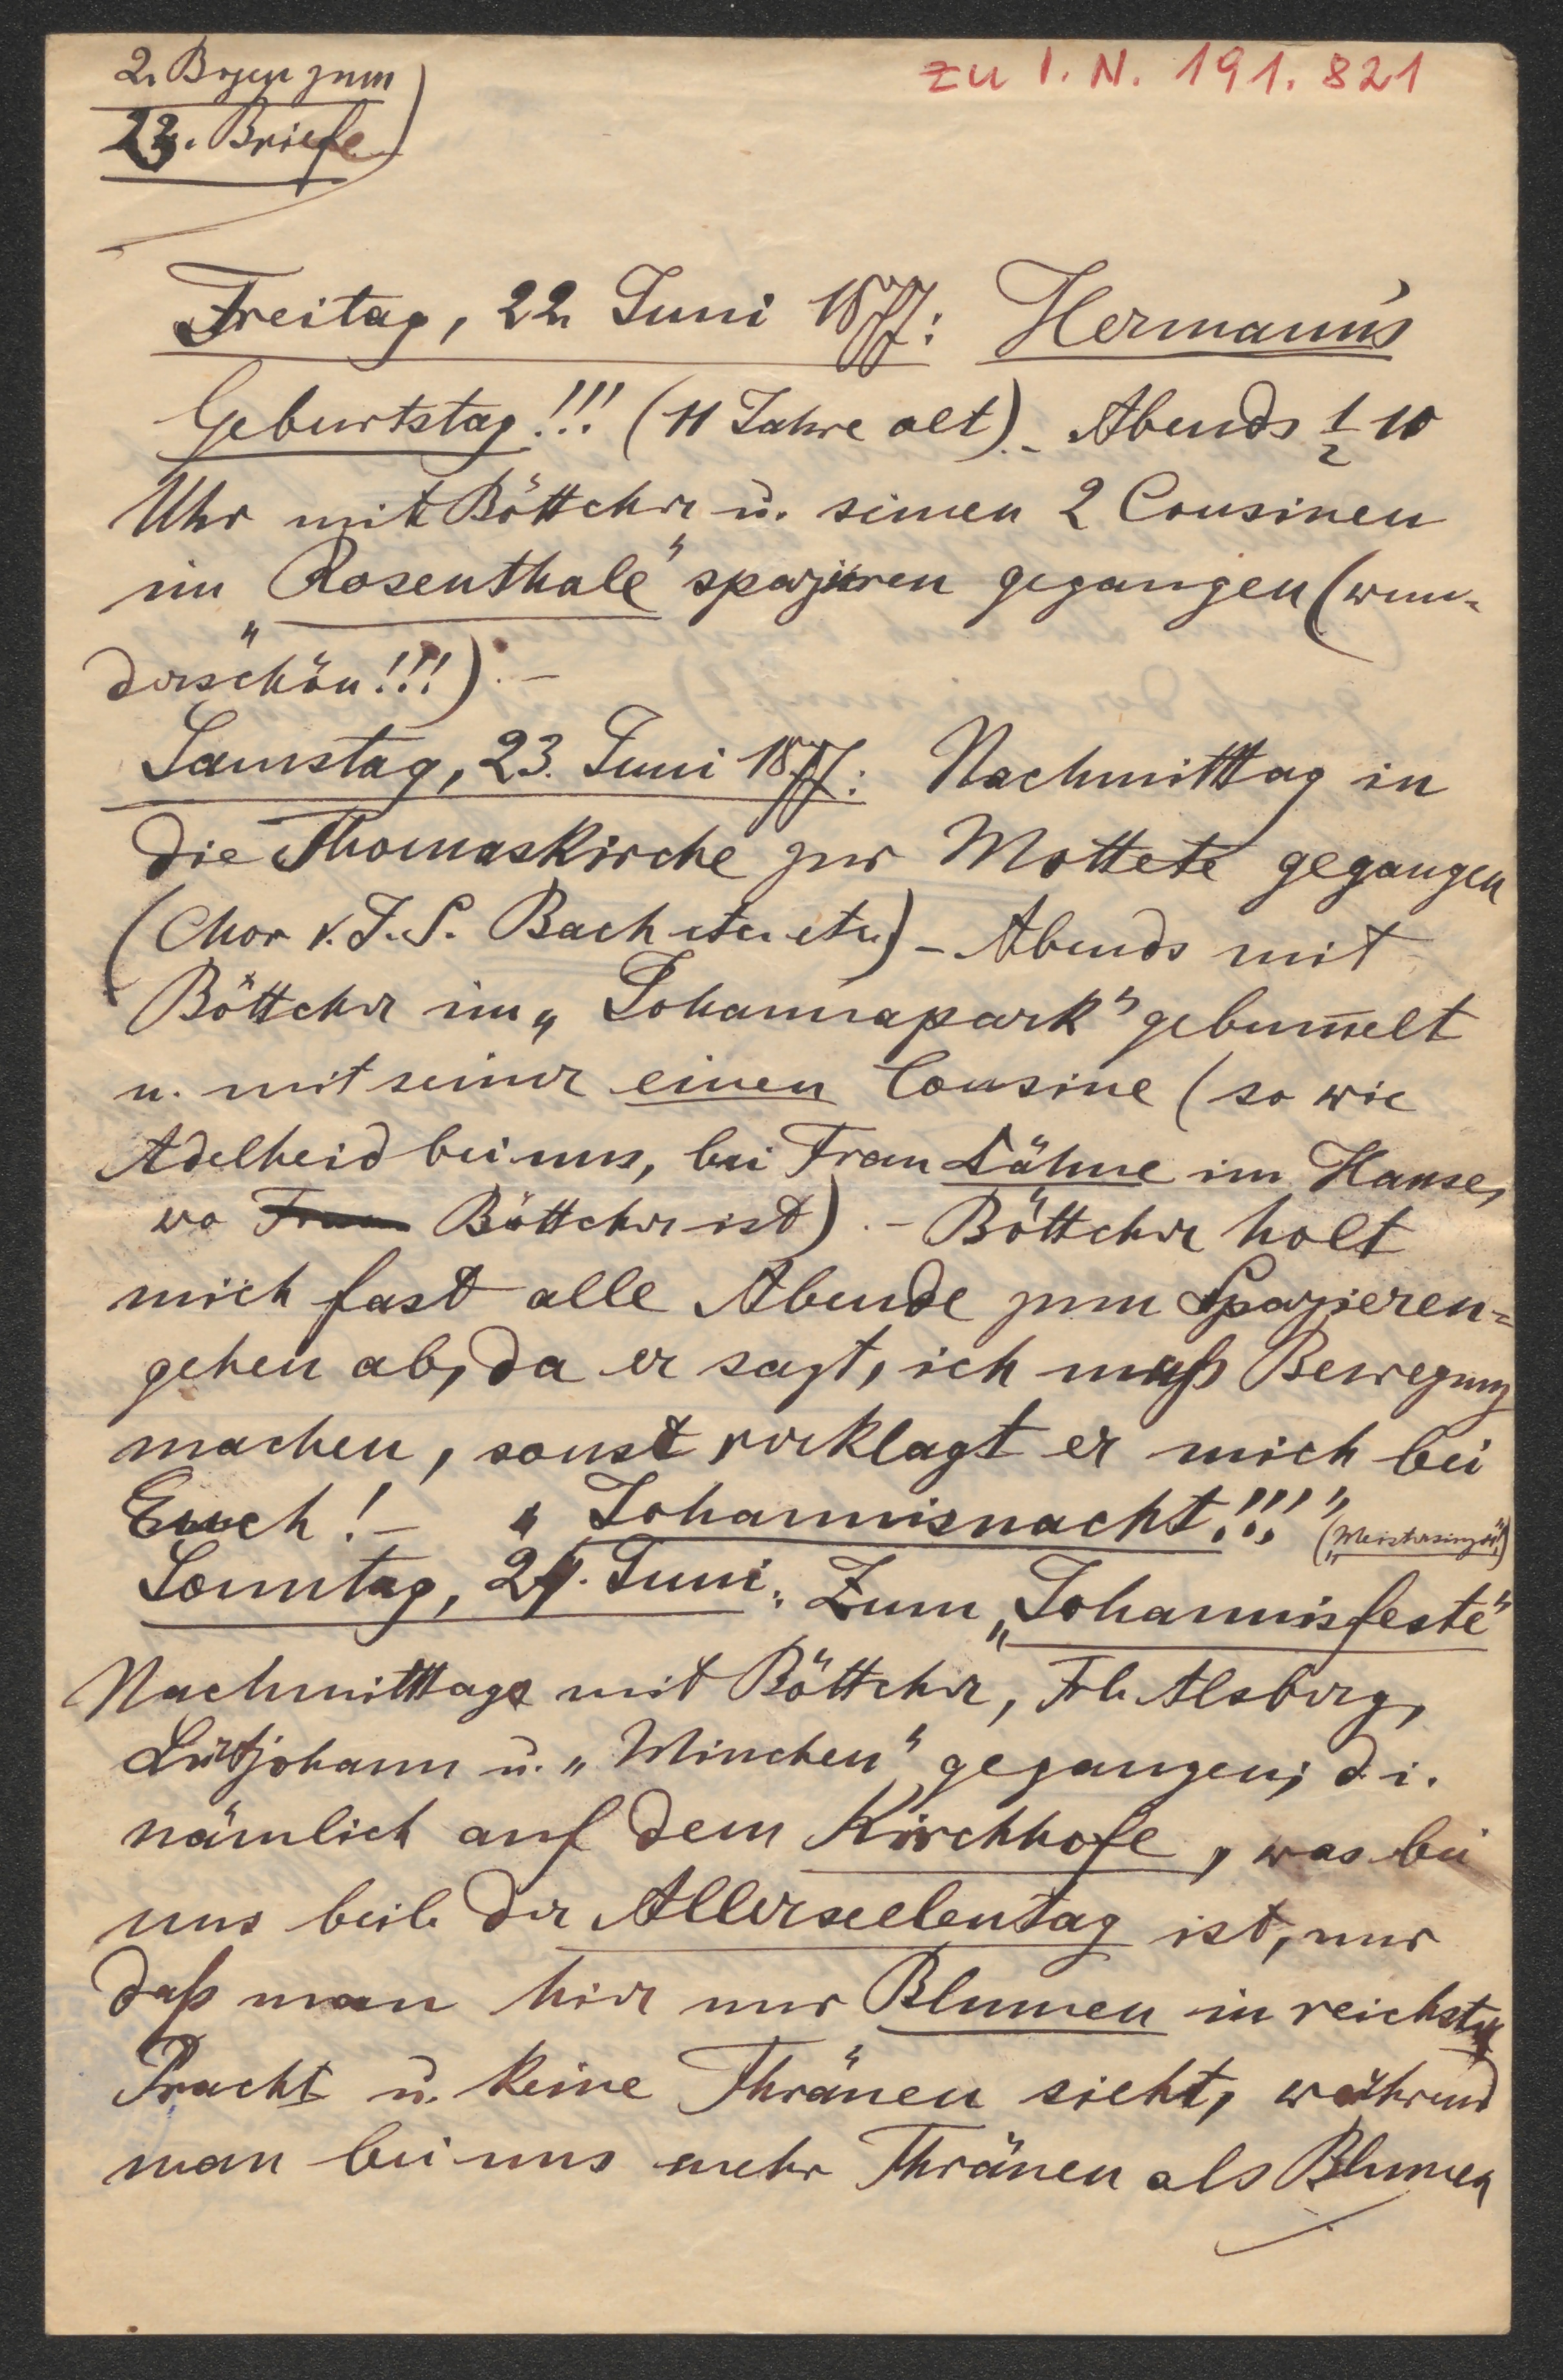 2. Bogen zum
zu I. N. 191.821
23. Briefe
Freitag, 22. Juni 1877: Hermann's
Geburtstag!!! (11 Jahre alt). - Abends 1/2 10
Uhr mit Böttcher u. seinen 2 Cousinen
im „Rosenthale" spazieren gegangen (wun-
derschön!!!). -
Samstag, 23. Juni 1877: Nachmittag in
die Thomaskirche zur Mottete gegangen
(Chor v. J. S. Bach etc. etc.) - Abends mit
Böttcher im „Johannapark" gebum̅elt
u. mit seiner einen Cousine (so wie
Adelheid bei uns, bei Frau Lähne im Hause,
wo Frau Böttcher ist). - Böttcher holt
mich fast alle Abende zum Spazieren-
gehen ab, da er sagt, ich muß Bewegung
machen, sonst verklagt er mich bei
Euch! - „Johannisnacht!!!" („Meistersinger")
Sonntag, 24. Juni. Zum „Johannisfeste"
Nachmittags mit Böttcher, Frl. Alsberg,
Lüttjohann u. „Minchen" gegangen; d. i.
nämlich auf dem Kirchhofe, was bei
uns beil. der Allerseelentag ist, nur
daß man hier nur Blumen in reichster
Pracht u. keine Thränen sieht, während
man bei uns mehr Thränen als Blumen